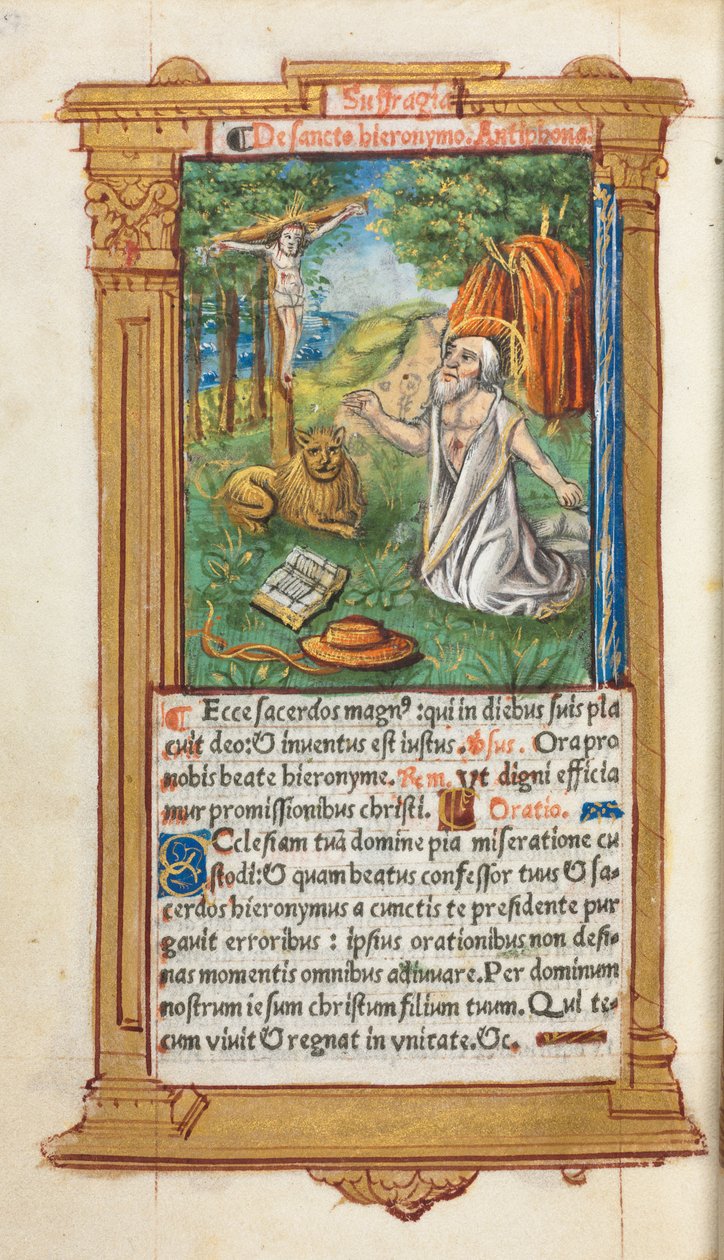 Suffragia
¶ De sancto hieronymo. Antiphona.
¶ Ecce sacerdos magnꝰ : qui in diebus suis pla
cuit deo: & inventus est iustus. ℣sus. Ora pro
nobis beate hieronyme. Rem. Vt digni efficia
mur promissionibus christi. Oratio.
ECclesiam tuã domine pia miseratione cu
stodi: & quam beatus confessor tuus & sa-
cerdos hieronymus a cunctis te presidente pur
gavit erroribus : ipsius orationibus non desi-
nas momentis omnibus adiuvare. Per dominum
nostrum iesum christum filium tuum. Qui te-
cum vivit & regnat in vnitate. &c.